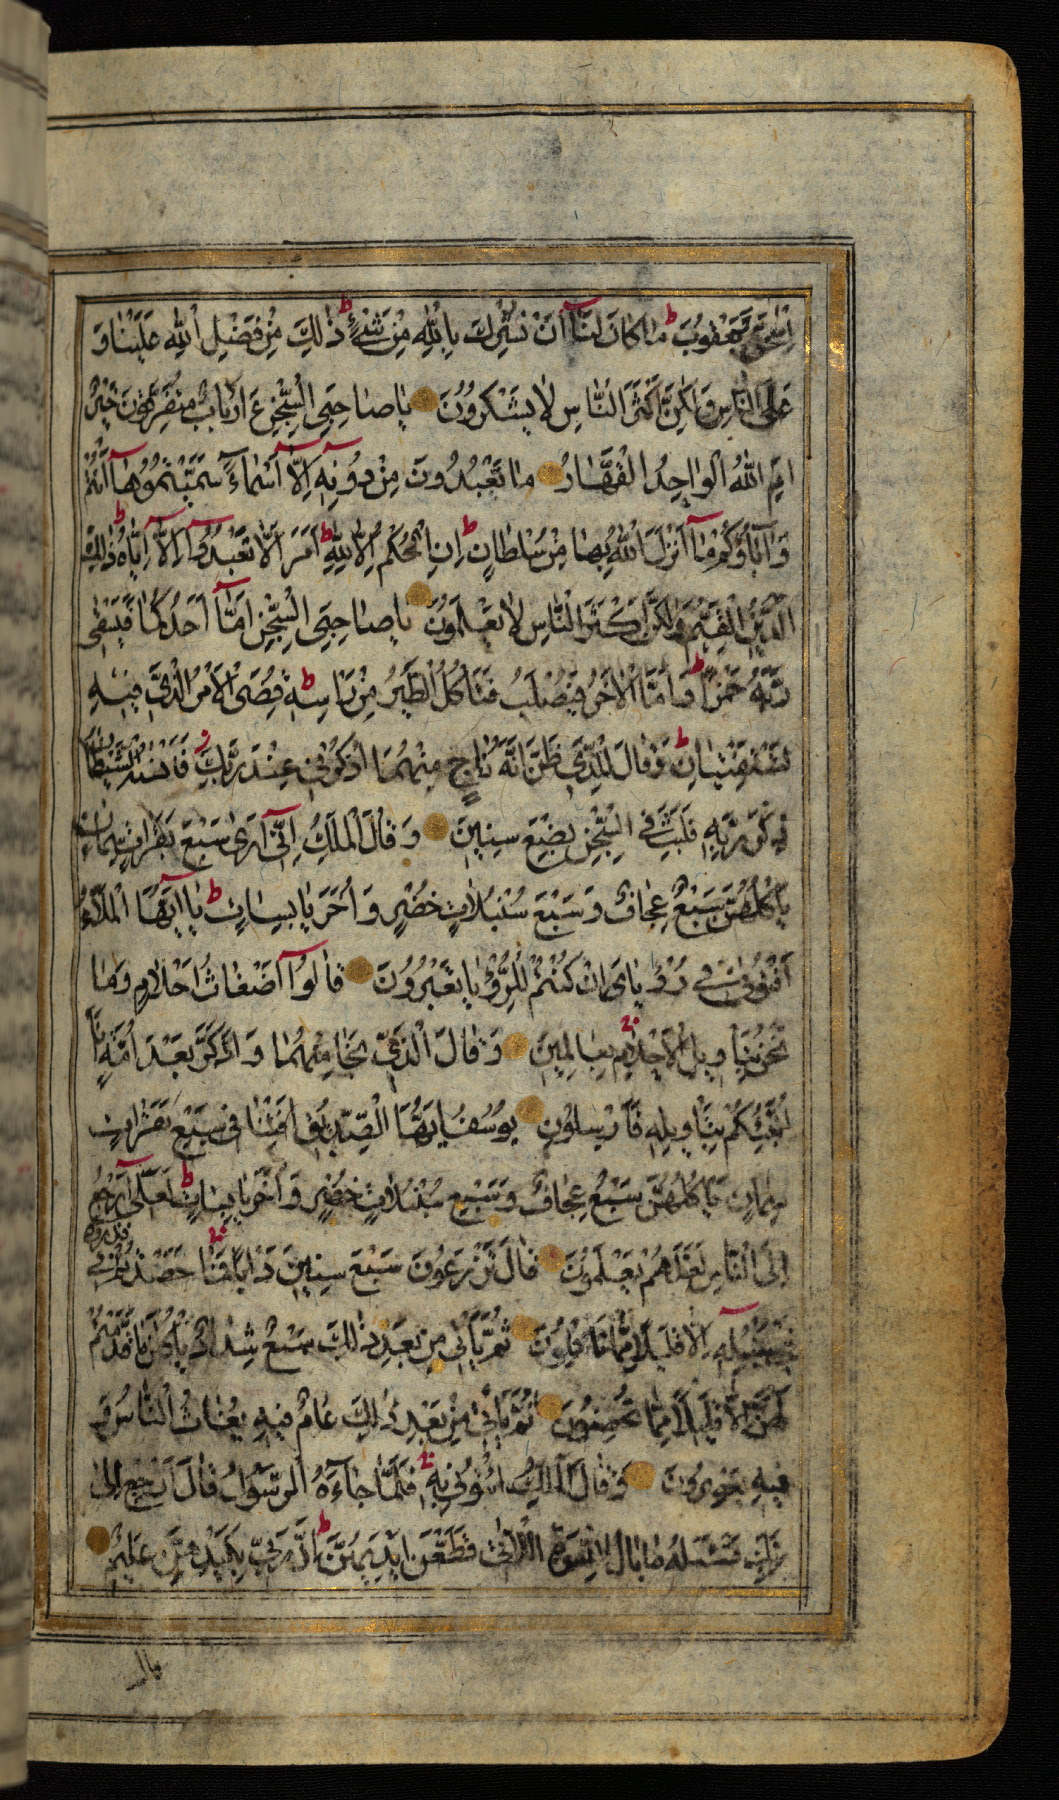 اِسْحٰقَ وَيَعْقُوبَ ط مٰا كٰانَ لَنٰٓا اَنْ نُشْرِكَ بِاللّٰهِ مِنْ شَيْءٍ ط ذٰلِكَ مِنْ فَضْلِ اللّٰهِ عَلَيْنٰا وَ
عَلَى النّٰاسِ وَلٰكِنَّ اَكْثَرَ النّٰاسِ لٰا يَشْكُرُونَ يٰا صٰاحِبَيِ السِّجْنِ ءَاَرْبٰابٌ مُتَفَرِّقُونَ خَيْرٌ
اَمِ اللّٰهُ الْوٰاحِدُ الْقَهّٰارُ مٰا تَعْبُدُونَ مِنْ دُونِهٖٓ اِلّٰٓا اَسْمٰٓاءً سَمَّيْتُمُوهٰٓا اَنْتُمْ
وَاٰبٰٓاؤُكُمْ مٰٓا اَنْزَلَ اللّٰهُ بِهٰا مِنْ سُلْطٰانٍ ط اِنِ الْحُكْمُ اِلّٰا لِلّٰهِ ط اَمَرَ اَلّٰا تَعْبُدُوٓا اِلّٰٓا اِيّٰاهُ ط ذٰلِكَ
الدِّينُ الْقَيِّمُ وَلٰكِنَّ اَكْثَرَ النّٰاسِ لٰا يَعْلَمُونَ يٰا صٰاحِبَيِ السِّجْنِ اَمّٰٓا اَحَدُكُمٰا فَيَسْقٖى
رَبَّهُ خَمْرًا ط وَاَمَّا الْاٰخَرُ فَيُصْلَبُ فَتَاْكُلُ الطَّيْرُ مِنْ رَاْسِهٖ ط قُضِيَ الْاَمْرُ الَّذٖي فٖيهِ
تَسْتَفْتِيٰانِ ط وَقٰالَ لِلَّذٖي ظَنَّ اَنَّهُ نٰاجٍ مِنْهُمَا اذْكُرْنٖي عِنْدَ رَبِّكَ ز فَاَنْسٰيهُ الشَّيْطٰانُ
ذِكْرَ رَبِّهٖ فَلَبِثَ فِي السِّجْنِ بِضْعَ سِنٖينَ وَقٰالَ الْمَلِكُ اِنّٖٓي اَرٰى سَبْعَ بَقَرٰاتٍ سِمٰانٍ
يَاْكُلُهُنَّ سَبْعٌ عِجٰافٌ وَسَبْعَ سُنْبُلٰاتٍ خُضْرٍ وَاُخَرَ يٰابِسٰاتٍ ط يٰٓا اَيُّهَا الْمَلَاُ
اَفْتُونٖي فٖي رُءْيٰايَ اِنْ كُنْتُمْ لِلرُّؤْيٰا تَعْبُرُونَ قٰالُوٓا اَضْغٰاثُ اَحْلٰامٍ وَمٰا
نَحْنُ بِتَاْوٖيلِ الْاَحْلٰامِ بِعٰالِمٖينَ وَقٰالَ الَّذٖي نَجٰا مِنْهُمٰا وَادَّكَرَ بَعْدَ اُمَّةٍ اَنَا
اُنَبِّئُكُمْ بِتَاْوٖيلِهٖ فَاَرْسِلُونِ يُوسُفُ اَيُّهَا الصِّدّٖيقُ اَفْتِنٰا فٖي سَبْعِ بَقَرٰاتٍ
سِمٰانٍ يَاْكُلُهُنَّ سَبْعٌ عِجٰافٌ وَسَبْعِ سُنْبُلٰاتٍ خُضْرٍ وَاُخَرَ يٰابِسٰاتٍ ط لَعَلّٖٓي اَرْجِعُ
اِلَى النّٰاسِ لَعَلَّهُمْ يَعْلَمُونَ قٰالَ تَزْرَعُونَ سَبْعَ سِنٖينَ دَاَبًا فَمٰا حَصَدْتُمْ فَذَرُوهُ فٖي
سُنْبُلِهٖٓ اِلّٰا قَلٖيلًا مِمّٰا تَاْكُلُونَ ثُمَّ يَاْتٖي مِنْ بَعْدِ ذٰلِكَ سَبْعٌ شِدٰادٌ يَاْكُلْنَ مٰا قَدَّمْتُمْ
لَهُنَّ اِلّٰا قَلٖيلًا مِمّٰا تُحْصِنُونَ ثُمَّ يَاْتٖي مِنْ بَعْدِ ذٰلِكَ عٰامٌ فٖيهِ يُغٰاثُ النّٰاسُ وَ
فٖيهِ يَعْصِرُونَ وَقٰالَ الْمَلِكُ ائْتُونٖي بِهٖ فَلَمّٰا جٰٓاءَهُ الرَّسُولُ قٰالَ ارْجِعْ اِلٰى
رَبِّكَ فَسْئَلْهُ مٰا بٰالُ النِّسْوَةِ اللّٰاتٖي قَطَّعْنَ اَيْدِيَهُنَّ ط اِنَّ رَبّٖي بِكَيْدِهِنَّ عَلٖيمٌ